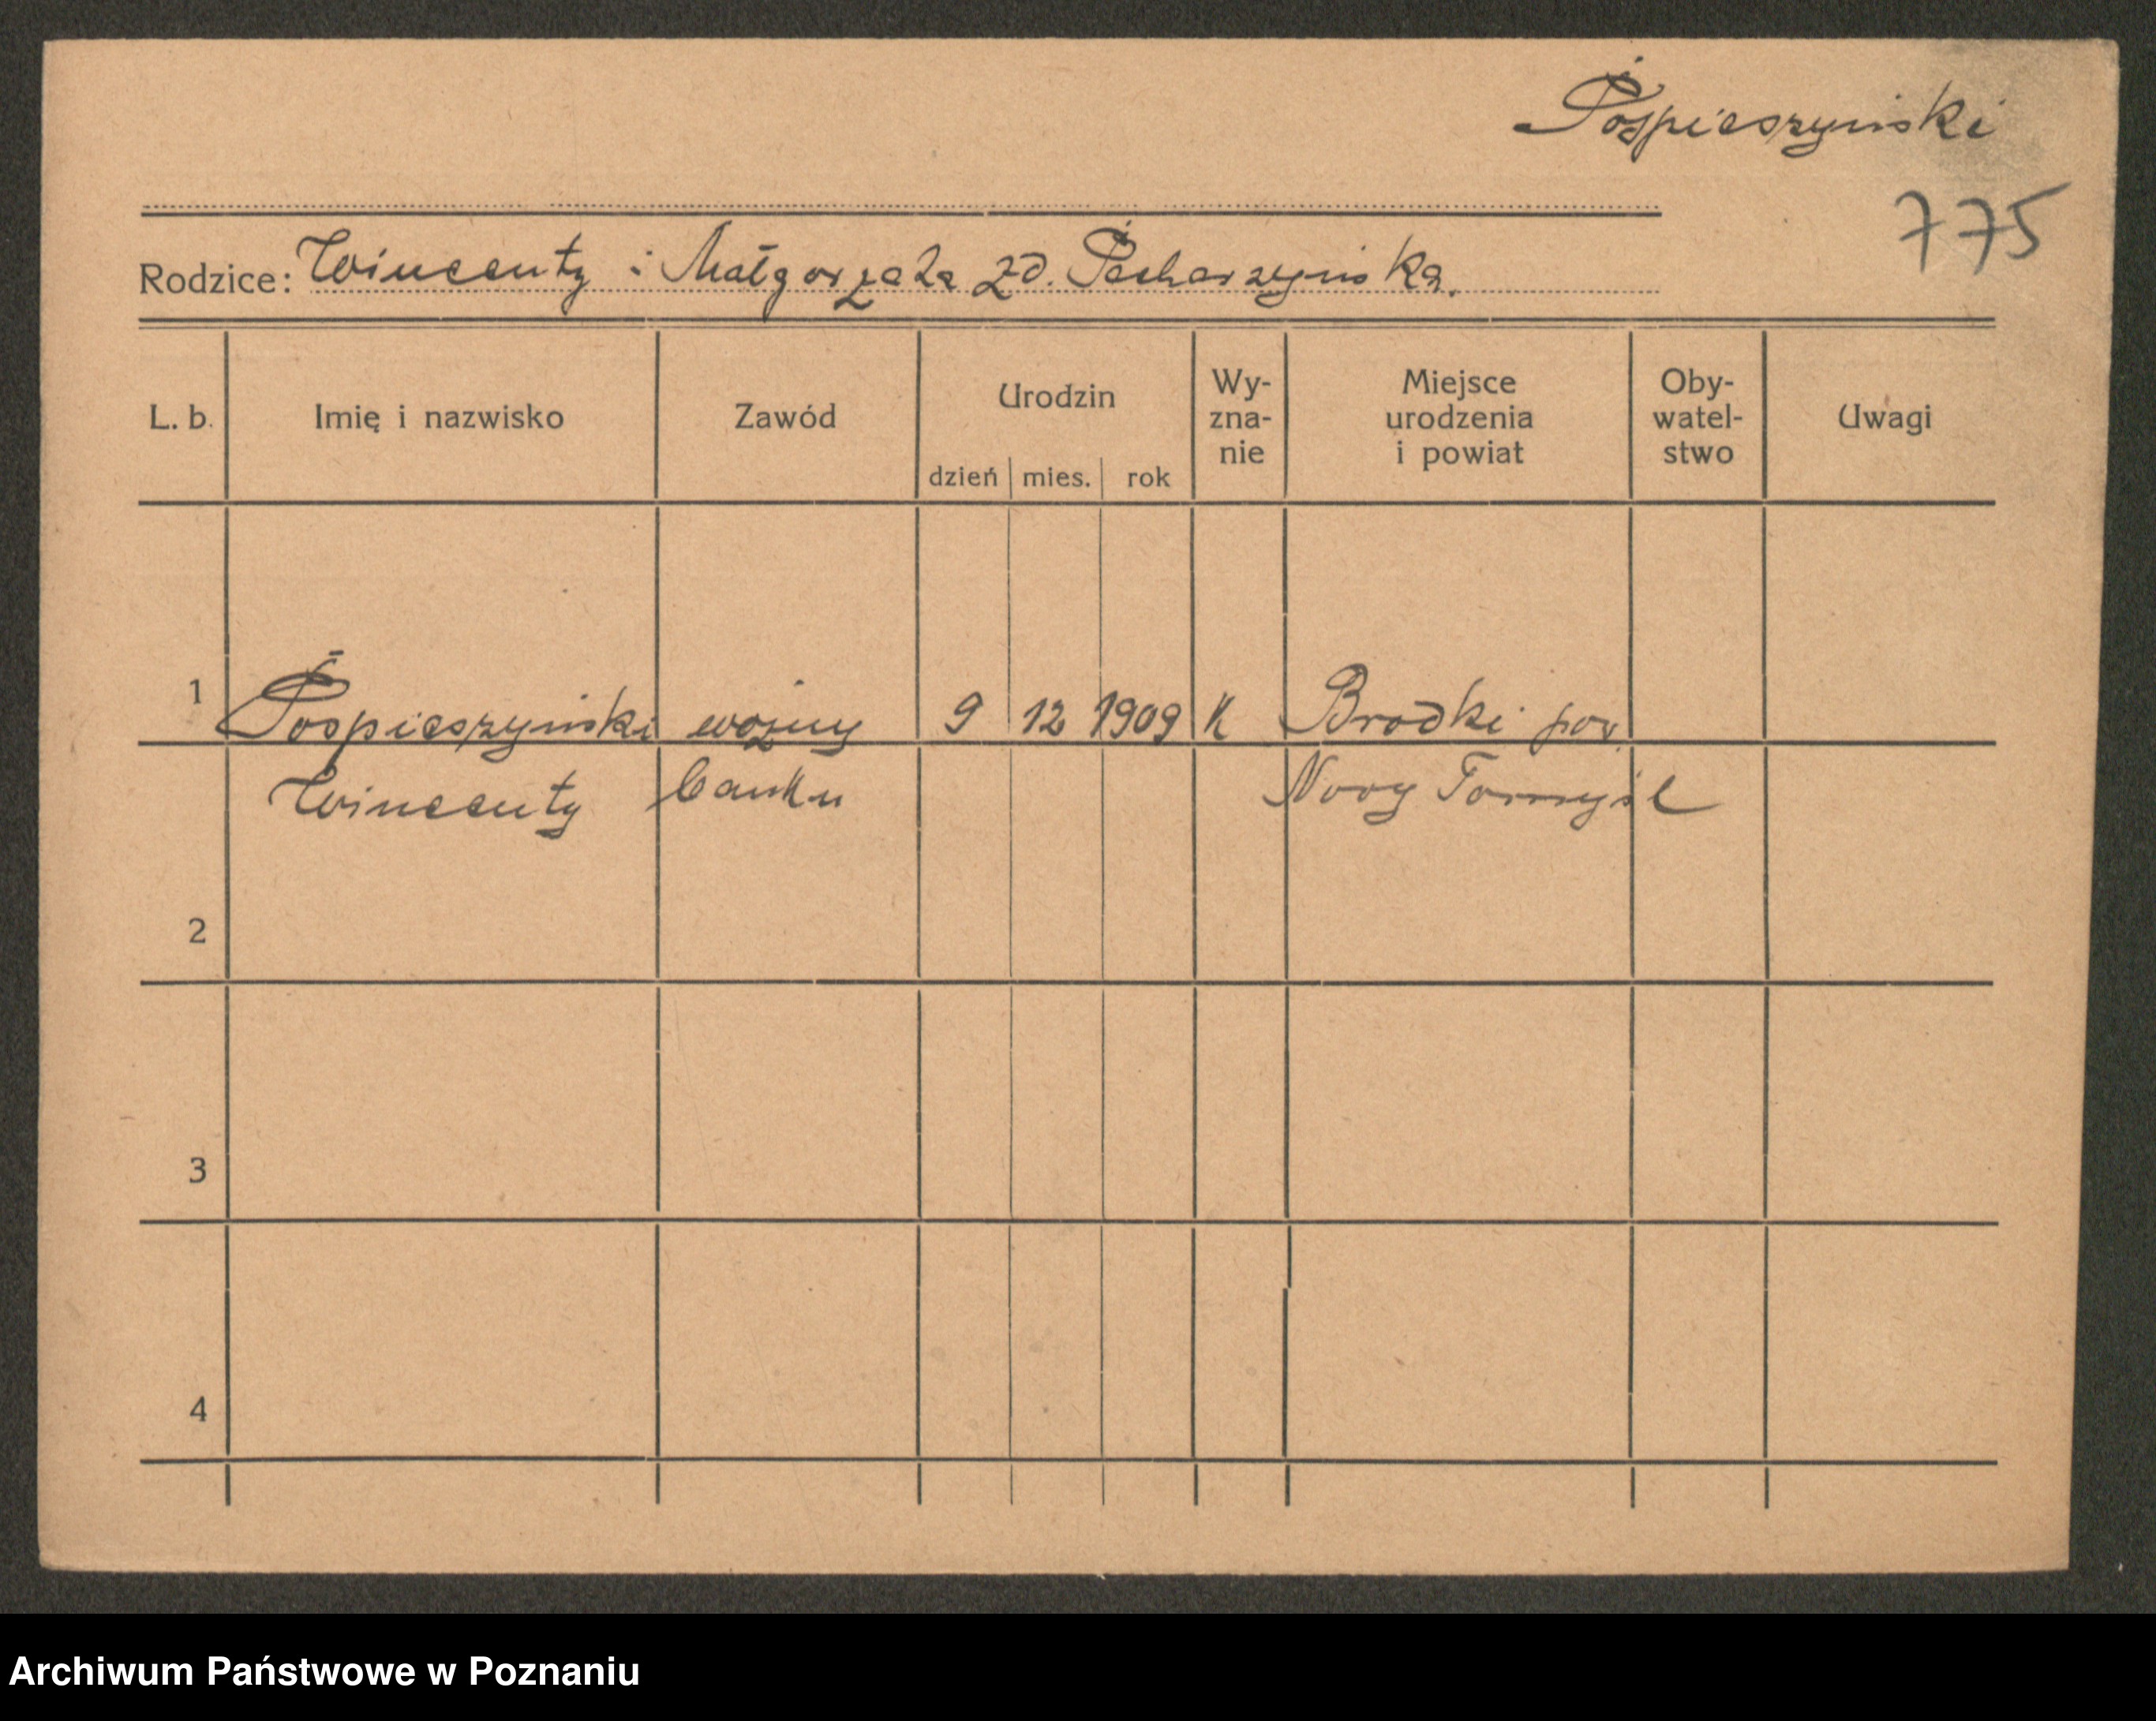 Pospieszyński
775
Rodzice: Wincenty i Małgorzata zd. Pecharzyńska.
L. b. Imię i nazwisko Zawód Urodzin dzień mies. rok Wy-zna-nie Miejsce urodzenia i powiat Oby-watel-stwo Uwagi
1 Pospieszyński woźny 9 12 1909 K Brodki pow.
Wincenty banku Nowy Tomyśl
2
3
4
Archiwum Państwowe w Poznaniu